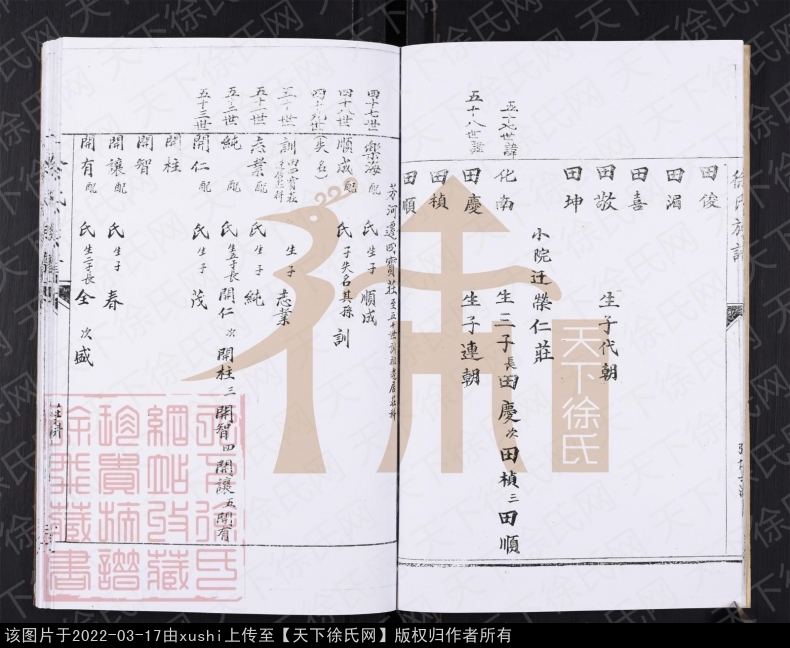 徐氏族譜
田俊
田湄
田喜
田敬 生子代朝
田坤
小院迁榮仁莊
五十七世諱 化南 生三子長田慶次田楨三田順
五十八世諱 田慶 生子連朝
田楨
田順
芳河遷田賓莊
四十七世 樂海 配 氏 生子 順成
四十八世 順成 配 氏 子失名其孫 訓
失名
訓 生子 志業
五十一世 志業 配 氏 生子 純
五十二世 純 配 氏 生五子長 開仁 次 開柱 三 開智 四 開讓 五 開有
五十三世 開仁 配 氏 生子 茂
開柱
開智
開讓 配 氏 生子 春
開有 配 氏 生二子長 全 次 盛
天下徐氏
天下徐氏网
该图片于2022-03-17由xushi上传至【天下徐氏网】版权归作者所有